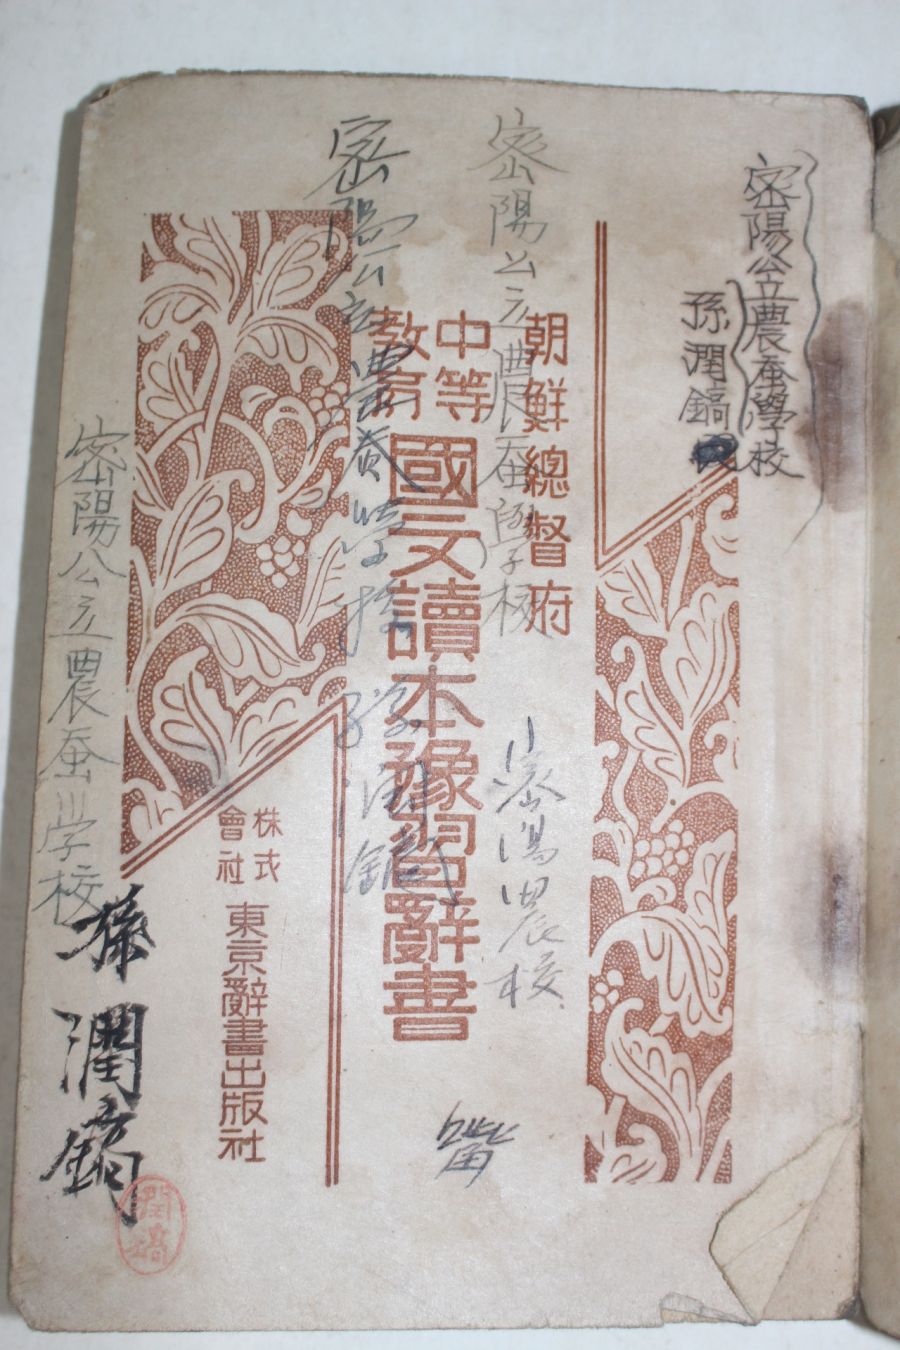 密陽公立農蚕學校
孫潤鎬
朝鮮總督府
密陽公立農蚕學校
密陽農校
中等
教育
國文讀本豫習辭書
密陽公立農蚕学校 孫潤鎬
株式
會社
東京辭書出版社
密陽公立農蚕学校
孫潤鎬